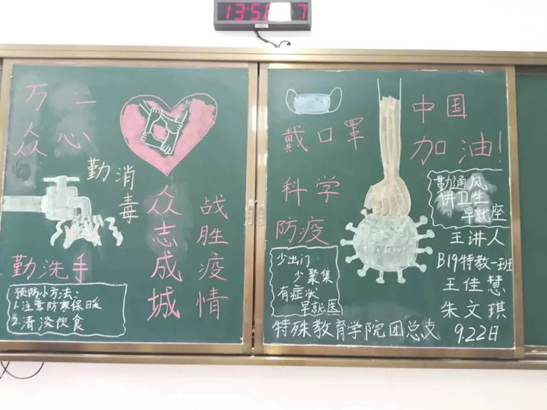 万众
一心
勤消毒
勤洗手
众志成城
战胜疫情
预防小方法:
1.注意防寒保暖
2.清淡饮食
戴口罩
科学
防疫
少出门
少聚集
有症状
早就医
中国
加油!
勤通风
讲卫生
早就座
主讲人
B19特教一班
王佳慧
朱文琪
特殊教育学院团总支 9.22日